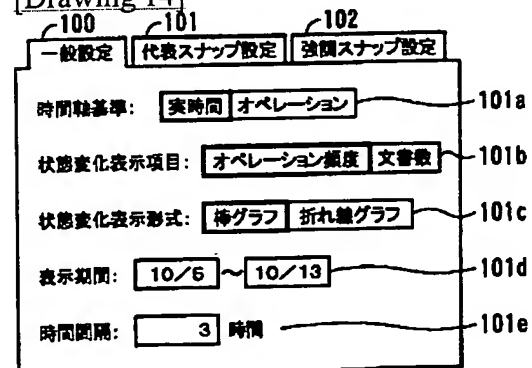 [Drawing 14]
100 101 102
一般設定 代表スナップ設定 強調スナップ設定
時間軸基準: 実時間 オペレーション 101a
状態変化表示項目: オペレーション頻度 文書数 101b
状態変化表示形式: 棒グラフ 折れ線グラフ 101c
表示期間: 10/6 ~ 10/13 101d
時間間隔: 3 時間 101e